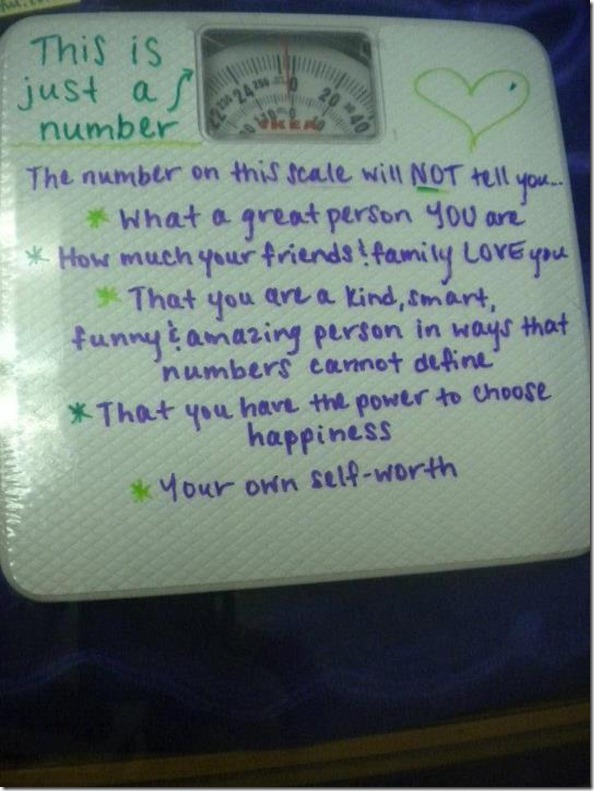 This is
just a
number
240
0
20
40
IKEA
The number on this scale will NOT tell you...
* What a great person YOU are
* How much your friends & family LOVE you
* That you are a kind, smart,
funny & amazing person in ways that
numbers cannot define
* That you have the power to choose
happiness
* Your own self-worth